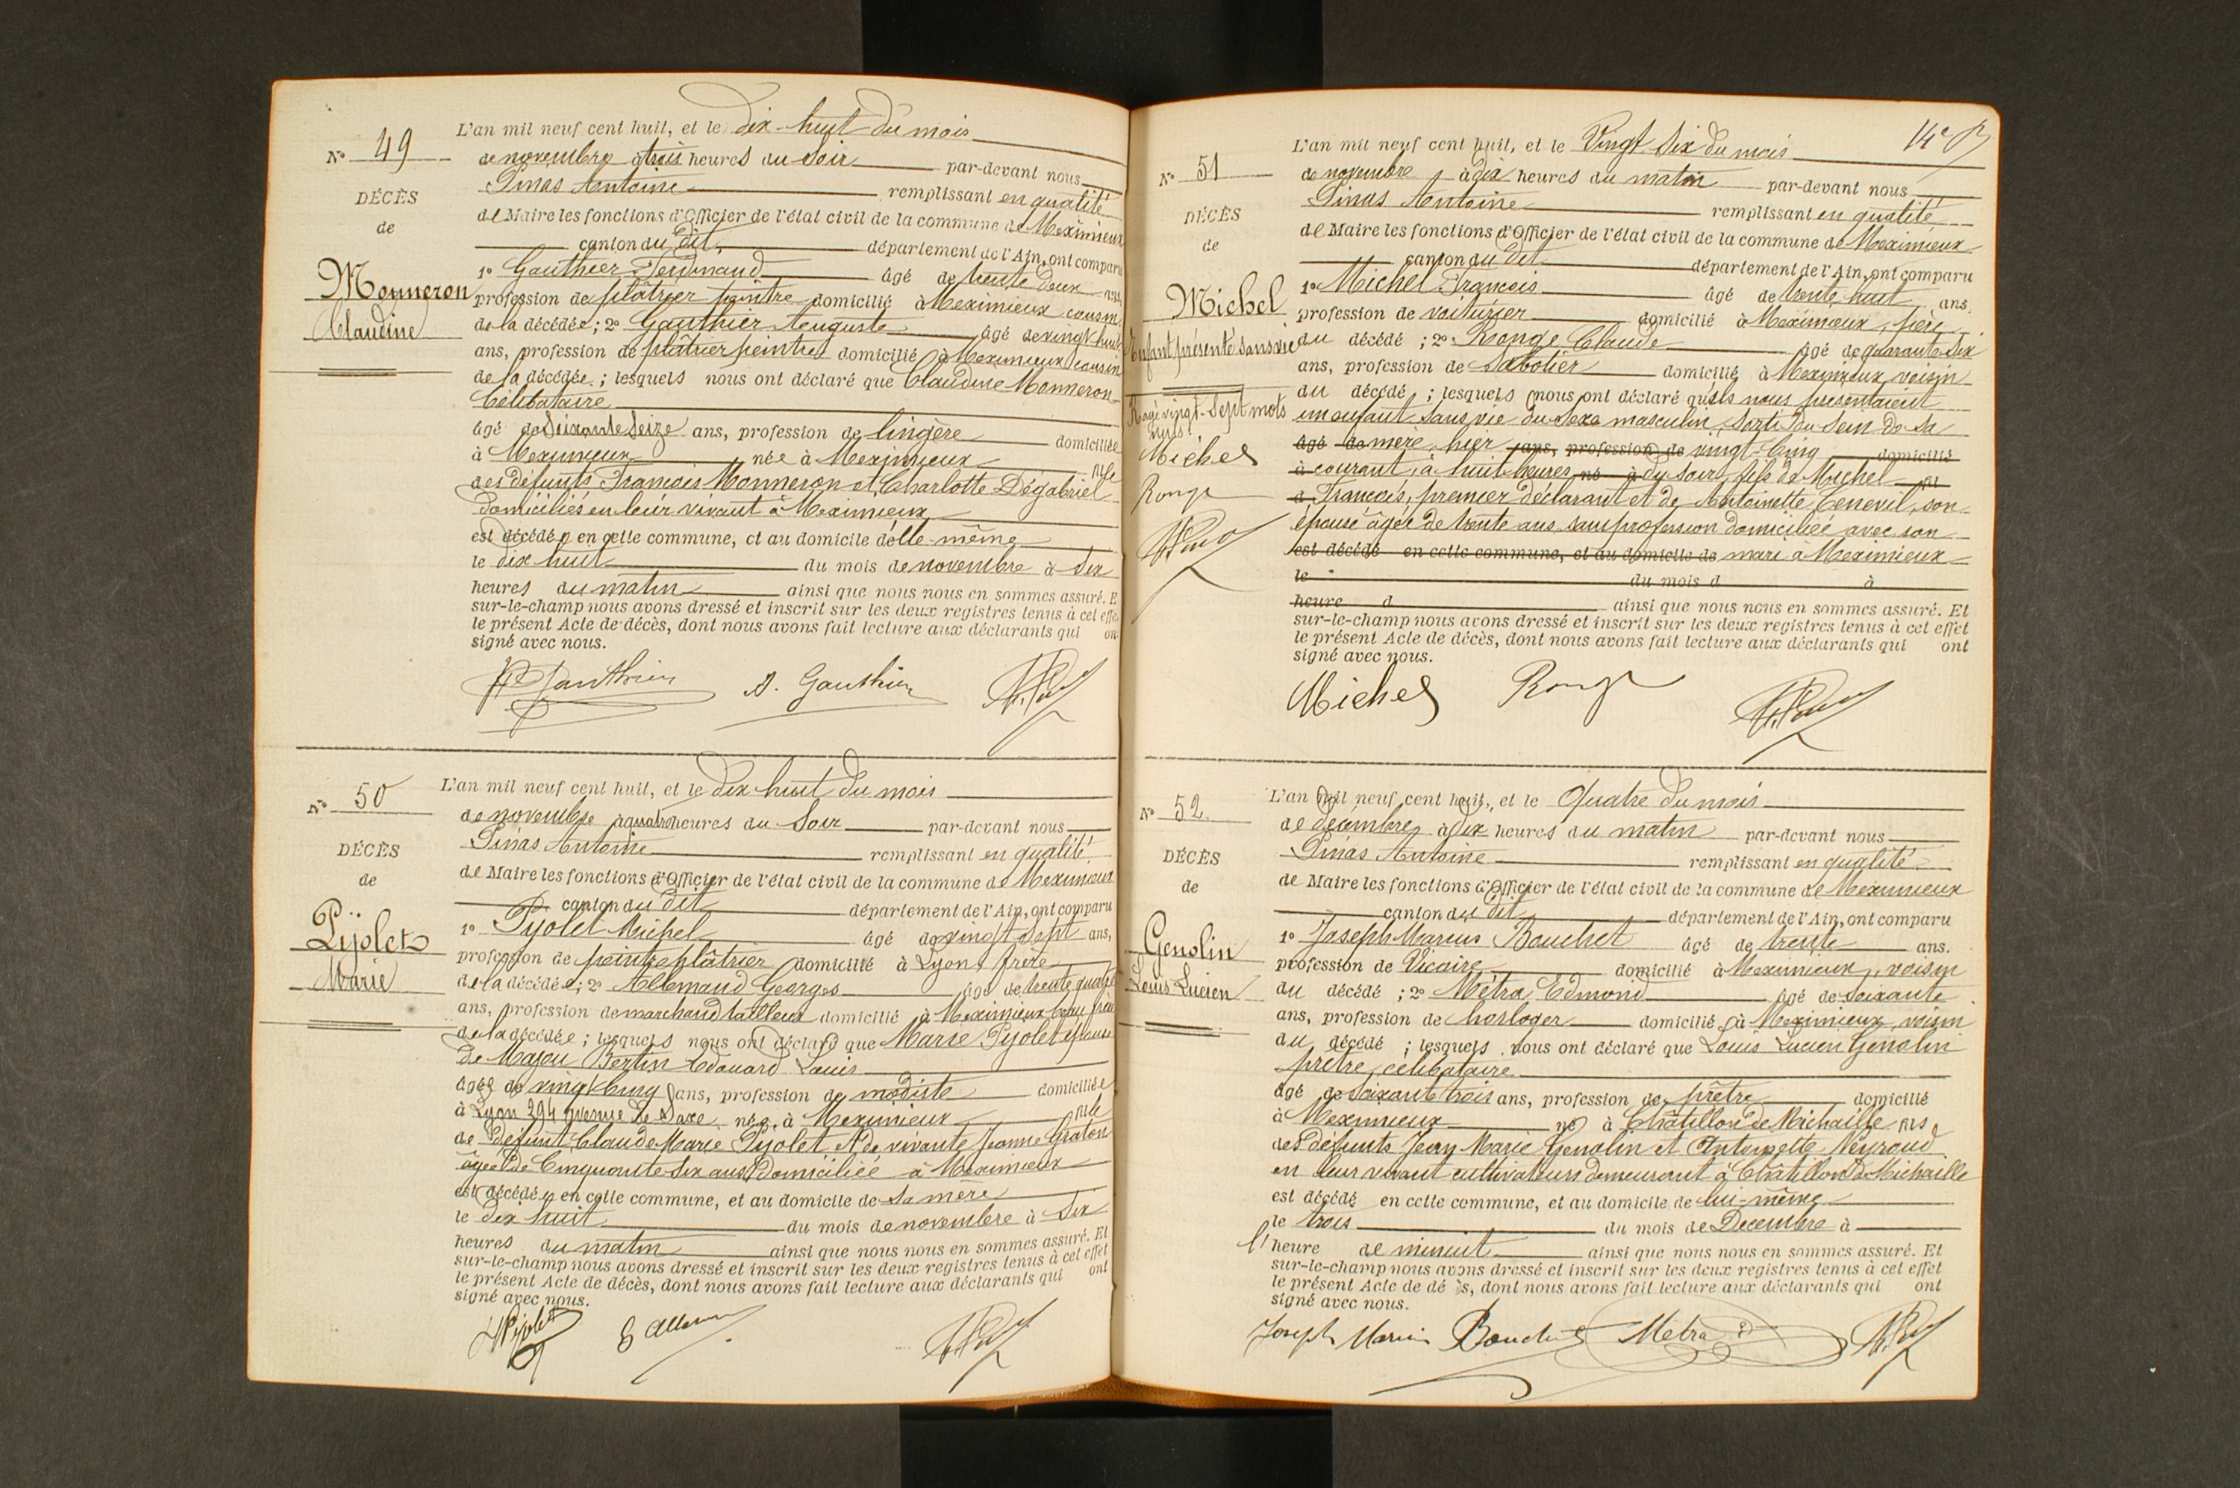 N° 49
DÉCÈS
de
Monneron
Claudine
L'an mil neuf cent huit, et le dix-huit du mois
de novembre à trois heures du Soir par-devant nous
Pinas Antoine remplissant en qualité
de Maire les fonctions d'Officier de l'état civil de la commune de Meximieux
canton du dit département de l'Ain, ont comparu
1° Gauthier Ferdinand âgé de trente deux ans,
profession de plâtrier peintre domicilié à Meximieux cousin
de la décédée ; 2° Gauthier Auguste âgé de vingt huit
ans, profession de plâtrier peintre domicilié à Meximieux cousin
de la décédée ; lesquels nous ont déclaré que Claudine Monneron
Célibataire
âgé de Soixante Seize ans, profession de lingère domiciliée
à Meximieux née à Meximieux fille
des défunts François Monneron et Charlotte Dégabriel
domiciliés en leur vivant à Meximieux
est décédée en cette commune, et au domicile d'elle-même
le dix huit du mois de novembre à Six
heures du matin ainsi que nous nous en sommes assuré. E
sur-le-champ nous avons dressé et inscrit sur les deux registres tenus à cet effe
le présent Acte de décès, dont nous avons fait lecture aux déclarants qui on
signé avec nous.
Gauthier A. Gauthier
N° 50
DÉCÈS
de
Pijolet
Marie
L'an mil neuf cent huit, et le dix huit du mois
de novembre à quatre heures du Soir par-devant nous
Pinas Antoine remplissant en qualité
de Maire les fonctions d'Officier de l'état civil de la commune de Meximieux
canton du dit département de l'Ain, ont comparu
1° Pijolet Michel âgé de vingt Sept ans,
profession de peintre plâtrier domicilié à Lyon, frère
de la décédée ; 2° Allemand Georges âgé de trente quatre
ans, profession de marchand tailleur domicilié à Meximieux beau frère
de la décédée ; lesquels nous ont déclaré que Marie Pijolet épouse
de Majou Bertin Edouard Louis
âgée de vingt Cinq ans, profession de modiste domiciliée
à Lyon 294 avenue de Saxe née à Meximieux fille
de défunt Claude Marie Pijolet et de vivante Jeanne Graton
âgée de Cinquante Six ans domiciliée à Meximieux
est décédée en cette commune, et au domicile de Sa mère
le dix huit du mois de novembre à Six
heures du matin ainsi que nous nous en sommes assuré. Et
sur-le-champ nous avons dressé et inscrit sur les deux registres tenus à cet effet
le présent Acte de décès, dont nous avons fait lecture aux déclarants qui ont
signé avec nous.
Pijolet G Allemand
14e
N° 51
DÉCÈS
de
Michel
Enfant présenté sans vie
Rayé vingt-Sept mots
nuls
Michel
Ronge
L'an mil neuf cent huit, et le Vingt Six du mois
de novembre à dix heures du matin par-devant nous
Pinas Antoine remplissant en qualité
de Maire les fonctions d'Officier de l'état civil de la commune de Meximieux
canton du dit département de l'Ain, ont comparu
1° Michel François âgé de trente huit ans,
profession de voiturier domicilié à Meximieux, père
du décédé ; 2° Ronge Claude âgé de quarante Six
ans, profession de Sabotier domicilié à Meximieux voisin
du décédé ; lesquels nous ont déclaré qu'ils nous présentaient
un enfant Sans vie du Sexe masculin, Sorti du Sein de Sa
âgé de mère, hier ans, profession de vingt-Cinq domicilié
à courant, à huit heures né à du Soir, fils de Michel fils
d François, premier déclarant et de Antoinette Cenevil, son
épouse âgée de trente ans sans profession domiciliée avec son
est décédé en cette commune, et au domicile de mari à Meximieux
le du mois d à
heure d ainsi que nous nous en sommes assuré. Et
sur-le-champ nous avons dressé et inscrit sur les deux registres tenus à cet effet
le présent Acte de décès, dont nous avons fait lecture aux déclarants qui ont
signé avec nous.
Michel Ronge
N° 52
DÉCÈS
de
Genolin
Louis Lucien
L'an mil neuf cent huit, et le Quatre du mois
de décembre à dix heures du matin par-devant nous
Pinas Antoine remplissant en qualité
de Maire les fonctions d'Officier de l'état civil de la commune de Meximieux
canton du dit département de l'Ain, ont comparu
1° Joseph Marius Bouchet âgé de trente ans.
profession de Vicaire domicilié à Meximieux, voisin
du décédé ; 2° Métra Edmond âgé de soixante
ans, profession de horloger domicilié à Meximieux, voisin
du décédé ; lesquels nous ont déclaré que Louis Lucien Genolin
prêtre, célibataire
âgé de Soixante trois ans, profession de prêtre domicilié
à Meximieux né à Châtillon de Michaille fils
des défunts Jean Marie Genolin et Antoinette Neyroud
en leur vivant cultivateurs demeurant à Châtillon de Michaille
est décédé en cette commune, et au domicile de lui-même
le trois du mois de Decembre à
l'heure de minuit ainsi que nous nous en sommes assuré. Et
sur-le-champ nous avons dressé et inscrit sur les deux registres tenus à cet effet
le présent Acte de dé ès, dont nous avons fait lecture aux déclarants qui ont
signé avec nous.
Joseph Marius Bouchet Métra